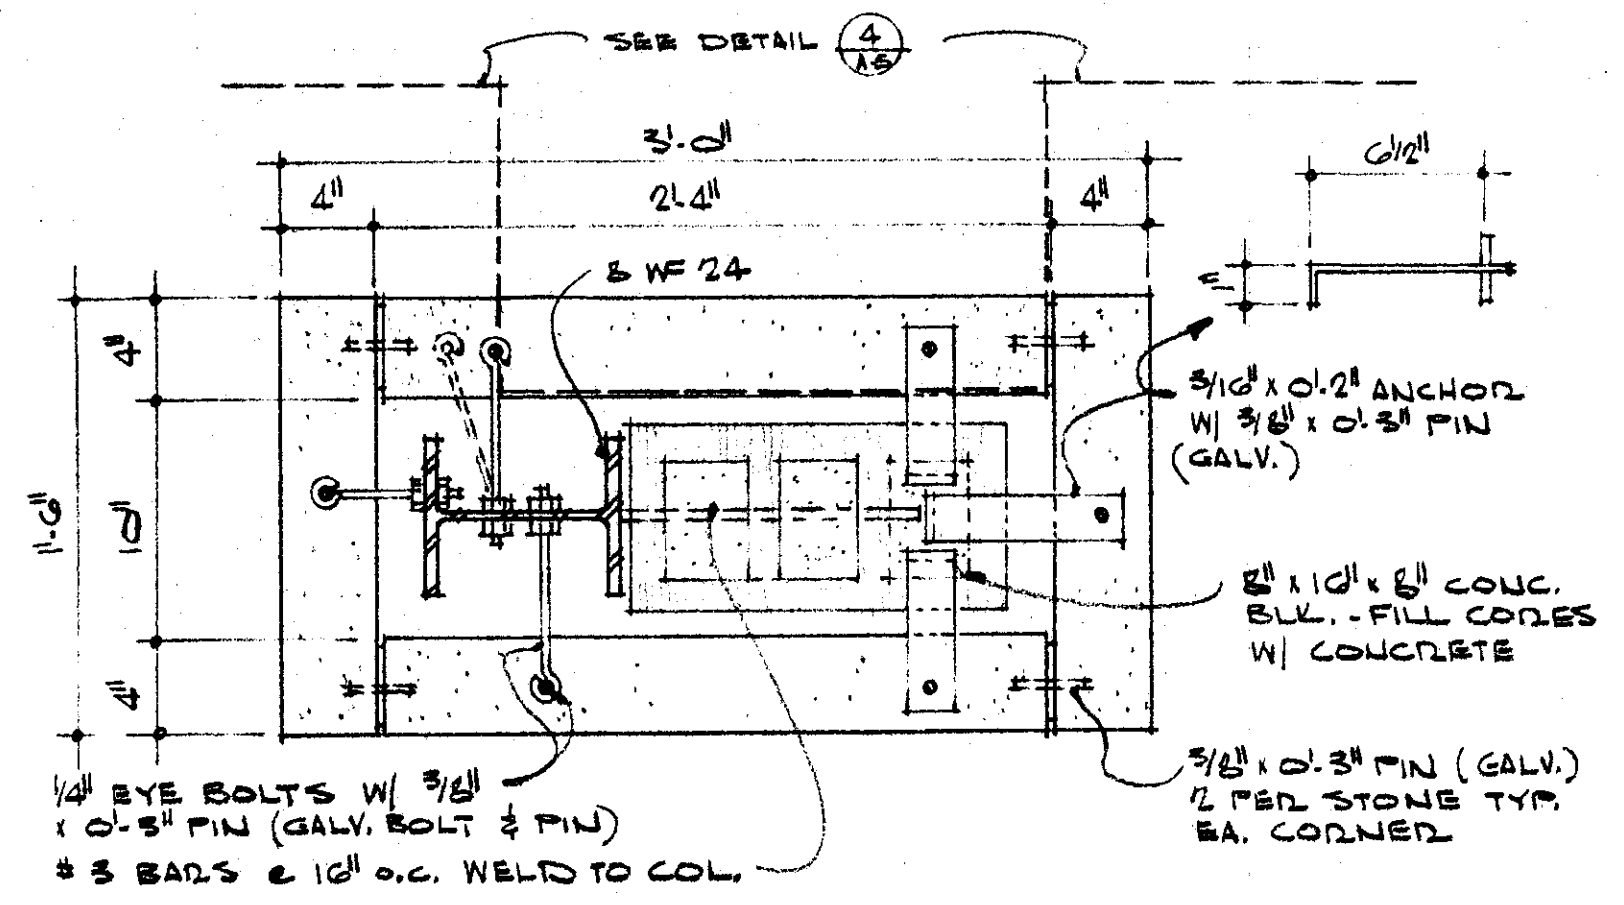 SEE DETAIL 4
A-5
3'-0"
4"
2'-4"
4"
6 1/2"
8 WF 24
1"
4"
1'-6"
10"
4"
3/16" x 0'-2" ANCHOR
W/ 3/8" x 0'-3" PIN
(GALV.)
8" x 16" x 8" CONC.
BLK. - FILL CORES
W/ CONCRETE
3/8" x 0'-3" PIN (GALV.)
2 PER STONE TYP.
EA. CORNER
1/4" EYE BOLTS W/ 3/8"
x 0'-3" PIN (GALV. BOLT & PIN)
# 3 BARS @ 16" O.C. WELD TO COL.